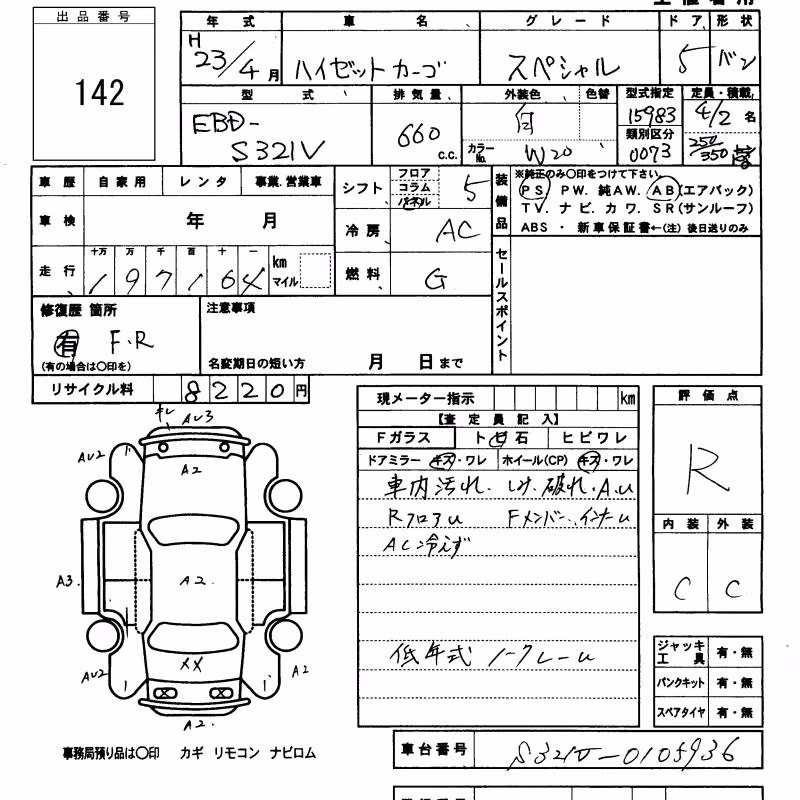 出品番号
142
年式 車名 グレード ドア 形状
H 23/4月 ハイゼットカーゴ スペシャル 5 バン
型式 排気量 外装色 色替 型式指定 定員・積載
EBD-S321V 660 c.c. 白 15983 4/2 名
カラーNo. W20 類別区分 0073 250/350
車歴 自家用 レンタ 事業.営業車
シフト フロア コラム パネル 5
装備品 ※純正のみ〇印をつけて下さい。
PS PW. 純AW. AB(エアバック)
TV. ナビ. カワ. SR(サンルーフ)
ABS ・ 新車保証書←(注) 後日送りのみ
車検 年 月
冷房 AC
走行 十万 万 千 百 十 一
197164 km マイル
燃料 G
セールスポイント
修復歴 箇所
有 F.R
(有の場合は〇印を)
注意事項
名変期日の短い方 月 日まで
リサイクル料 8220円
現メーター指示 km
【査定員記入】
Fガラス トビ石 ヒビワレ
ドアミラー キズ・ワレ ホイール(CP) キズ・ワレ
車内汚れ. しみ. 破れ. AU
RフロアU Fメンバー.インナーU
AC冷えず
低年式 ノークレーム
評価点
R
内装 外装
C C
AU3
AU2
A2
A3.
A2.
XX
AU2
A2
A2.
ジャッキ工具 有・無
パンクキット 有・無
スペアタイヤ 有・無
事務局預り品は〇印 カギ リモコン ナビロム
車台番号 S321V-0105936